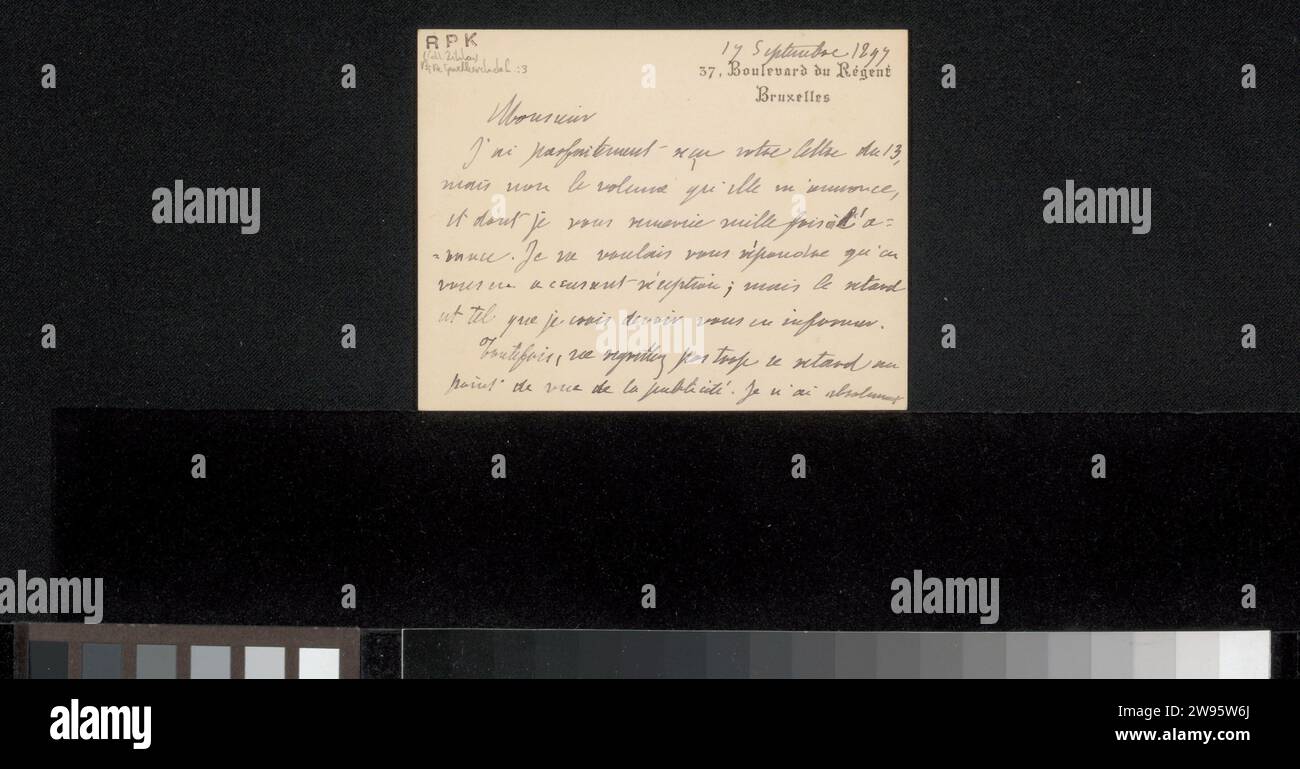 RPK
17 Septembre 1897
37, Boulevard du Régent
Bruxelles
Monsieur
J'ai parfaitement reçu votre lettre du 13,
mais non le volume qu'elle m'annonce,
et dont je vous remercie mille fois à l'a=
=vance. Je ne voulais vous répondre qu'en
vous en accusant réception; mais le retard
est tel que je crois devoir vous en informer.
Toutefois, ne regrettez pas trop ce retard au
point de vue de la publicité. Je n'ai absolument
a a a a
alamy alamy
a a a a
alamy
a a a a
alamy a a alamy a
alamy
Image ID: 2W95W6J
www.alamy.com